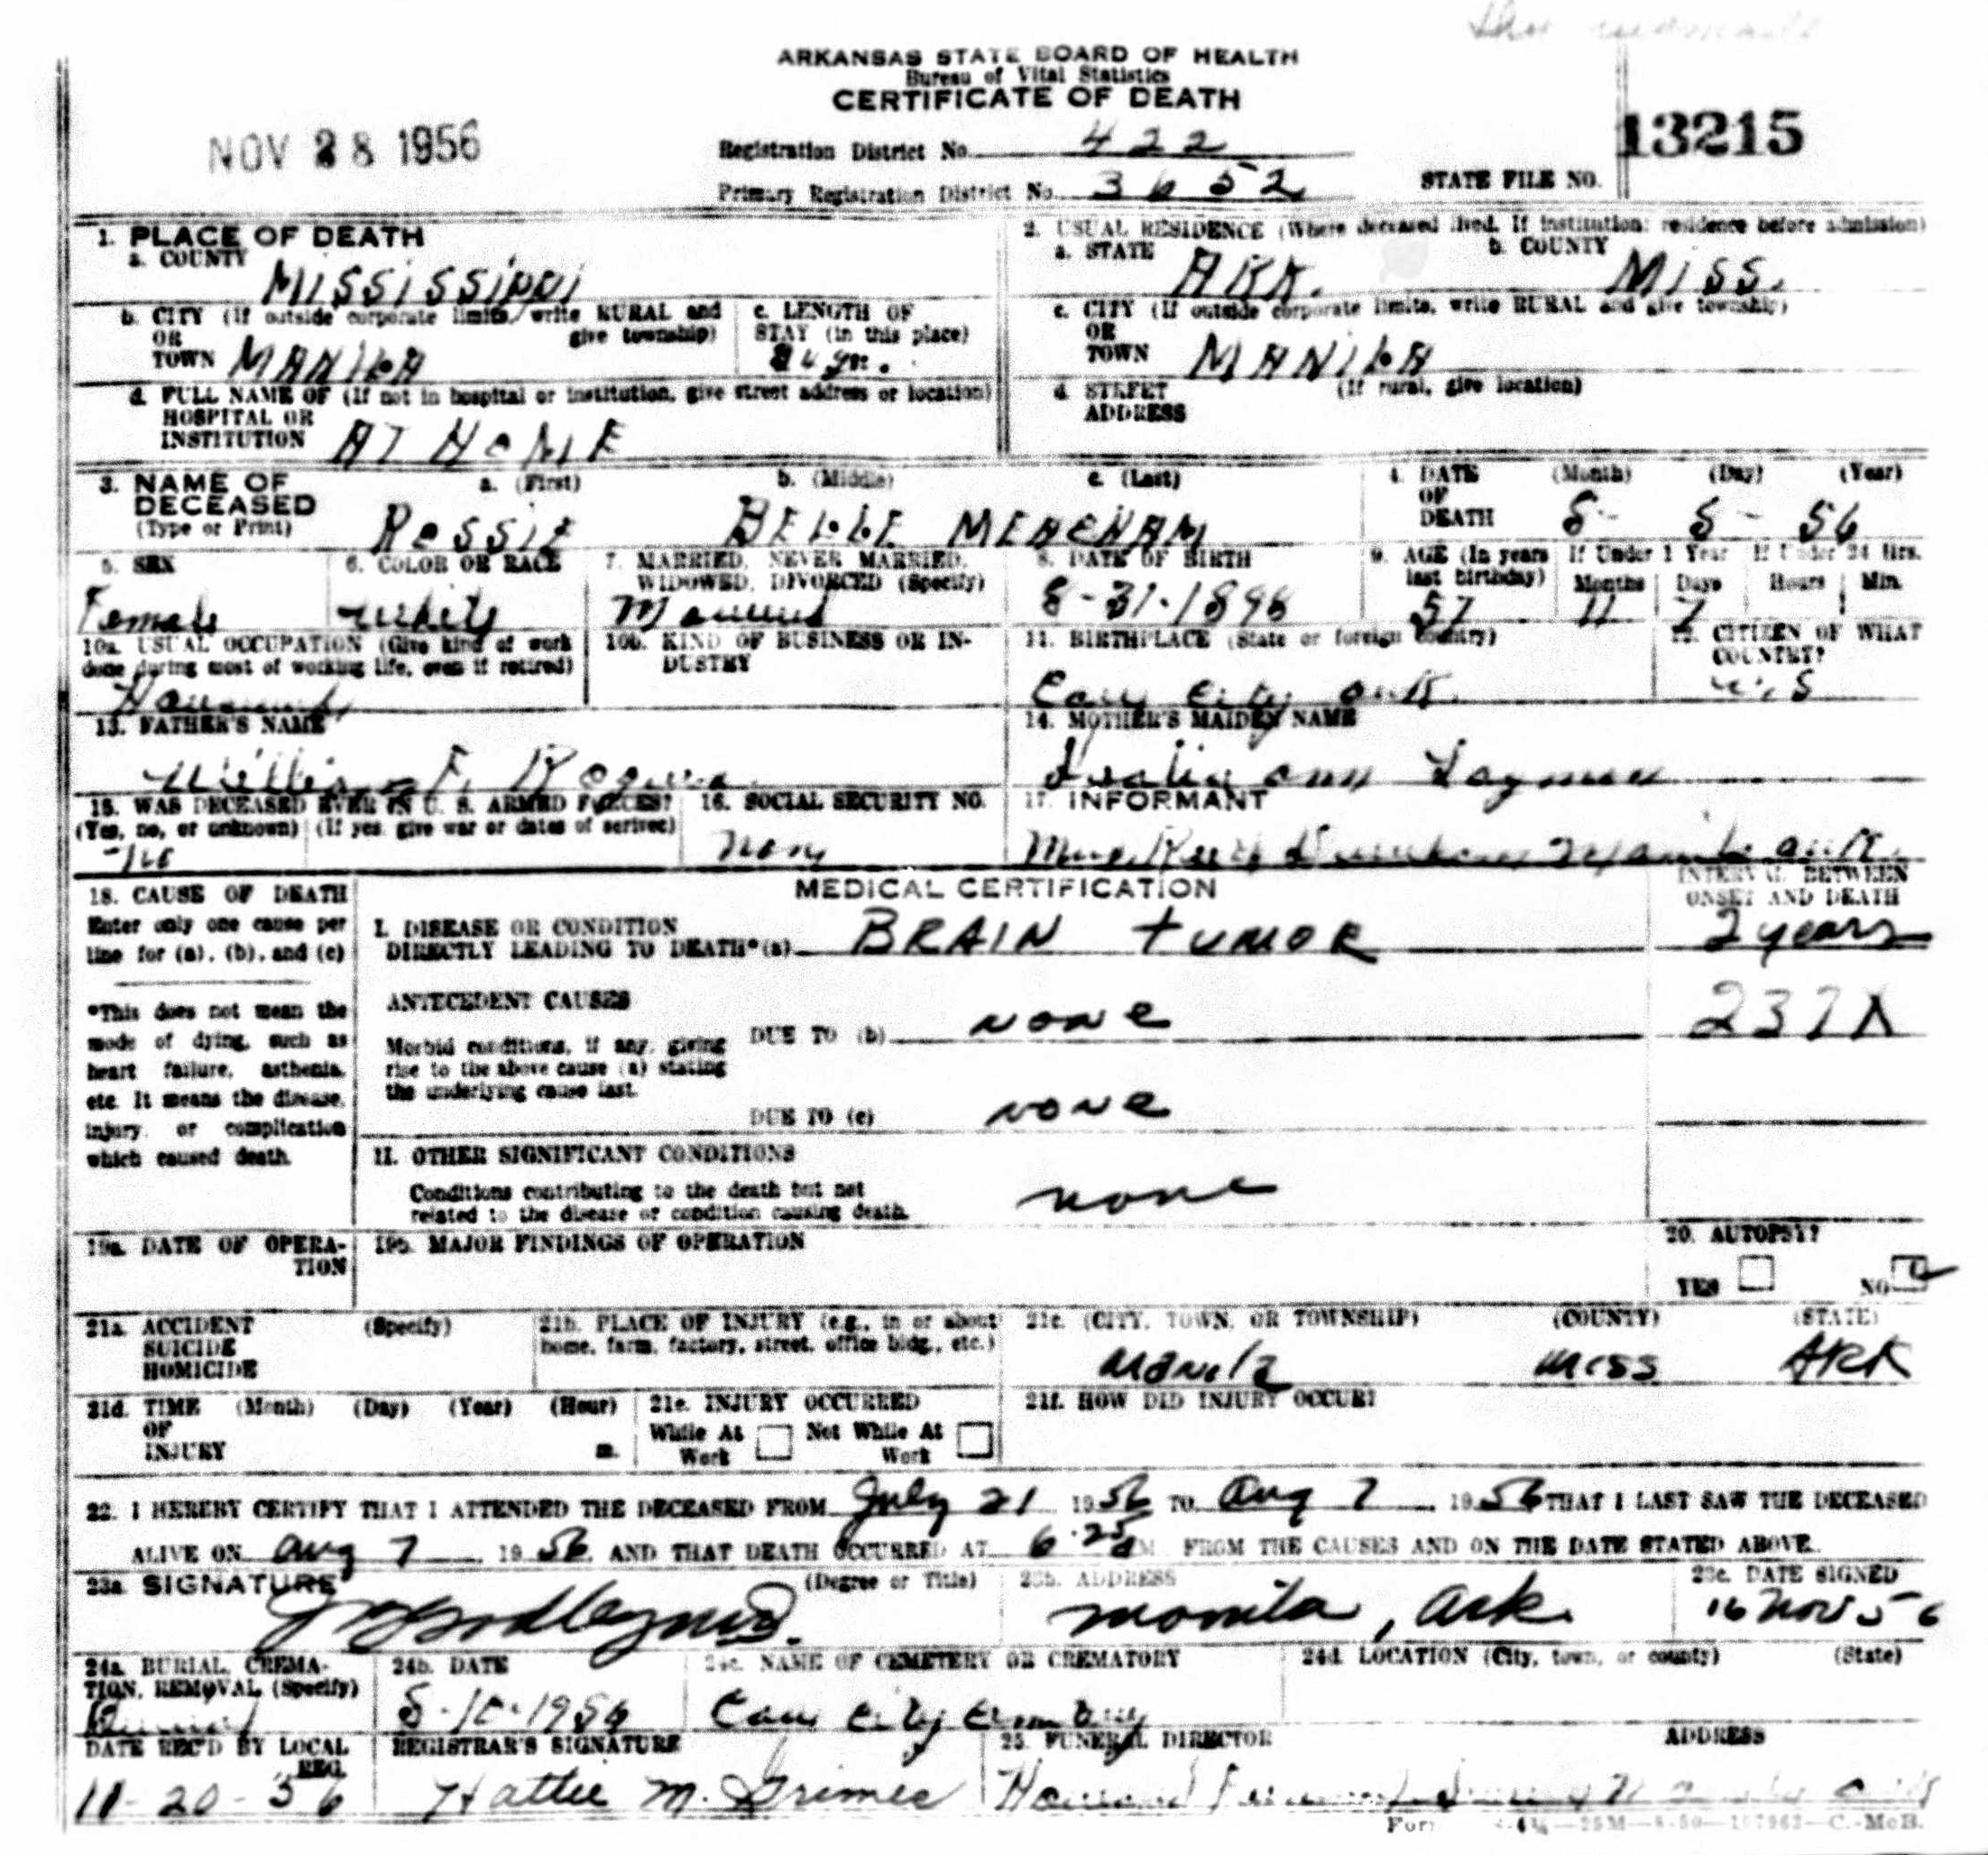 ARKANSAS STATE BOARD OF HEALTH
Bureau of Vital Statistics
CERTIFICATE OF DEATH
NOV 28 1956
Registration District No. 422
13215
Primary Registration District No. 3652
STATE FILE NO.
1. PLACE OF DEATH
a. COUNTY MISSISSIPPI
2. USUAL RESIDENCE (Where deceased lived. If institution: residence before admission)
a. STATE ARK. b. COUNTY MISS.
b. CITY (If outside corporate limits, write RURAL and give township) OR TOWN MANILA
c. LENGTH OF STAY (in this place) yr.
c. CITY (If outside corporate limits, write RURAL and give township) OR TOWN MANILA
d. FULL NAME OF (If not in hospital or institution, give street address or location) HOSPITAL OR INSTITUTION AT HOME
d. STREET ADDRESS (If rural, give location)
3. NAME OF DECEASED (Type or Print)
a. (First) b. (Middle) c. (Last)
ROSSIE BELLE
4. DATE OF DEATH (Month) (Day) (Year)
56
5. SEX Female
6. COLOR OR RACE White
7. MARRIED, NEVER MARRIED, WIDOWED, DIVORCED (Specify) Married
8. DATE OF BIRTH 8-31-1898
9. AGE (In years last birthday) 57
If Under 1 Year Months 11 Days 7
If Under 24 Hrs. Hours Min.
10a. USUAL OCCUPATION (Give kind of work done during most of working life, even if retired)
10b. KIND OF BUSINESS OR INDUSTRY
11. BIRTHPLACE (State or foreign country) Cave City ark.
12. CITIZEN OF WHAT COUNTRY? U.S
13. FATHER'S NAME
William F.
14. MOTHER'S MAIDEN NAME
ann
15. WAS DECEASED EVER IN U. S. ARMED FORCES?
(Yes, no, or unknown) (If yes, give war or dates of serivec)
no
16. SOCIAL SECURITY NO.
17. INFORMANT
Manila ark.
MEDICAL CERTIFICATION
18. CAUSE OF DEATH
Enter only one cause per line for (a), (b), and (c)
*This does not mean the mode of dying, such as heart failure, asthenia, etc. It means the disease, injury, or complication which caused death.
INTERVAL BETWEEN ONSET AND DEATH
I. DISEASE OR CONDITION DIRECTLY LEADING TO DEATH*(a) BRAIN TUMOR
2 years
ANTECEDENT CAUSES
Morbid conditions, if any, giving rise to the above cause (a) stating the underlying cause last.
DUE TO (b) NONE
237X
DUE TO (c) NONE
II. OTHER SIGNIFICANT CONDITIONS
Conditions contributing to the death but not related to the disease or condition causing death.
none
19a. DATE OF OPERATION
19b. MAJOR FINDINGS OF OPERATION
20. AUTOPSY?
YES NO
21a. ACCIDENT SUICIDE HOMICIDE (Specify)
21b. PLACE OF INJURY (e.g., in or about home, farm, factory, street, office bldg., etc.)
21c. (CITY, TOWN, OR TOWNSHIP) (COUNTY) (STATE)
Manila Miss ARK
21d. TIME OF INJURY (Month) (Day) (Year) (Hour) m.
21e. INJURY OCCURRED
While At Work Not While At Work
21f. HOW DID INJURY OCCUR?
22. I HEREBY CERTIFY THAT I ATTENDED THE DECEASED FROM July 21 1956 TO Aug 7 1956 THAT I LAST SAW THE DECEASED
ALIVE ON Aug 7 1956, AND THAT DEATH OCCURRED AT 6:25 M FROM THE CAUSES AND ON THE DATE STATED ABOVE.
23a. SIGNATURE (Degree or Title)
23b. ADDRESS
Manila, Ark.
23c. DATE SIGNED
16 Nov 56
24a. BURIAL, CREMATION, REMOVAL (Specify)
Burial
24b. DATE
24c. NAME OF CEMETERY OR CREMATORY
Cave City Cemetery
24d. LOCATION (City, town, or county) (State)
DATE REC'D BY LOCAL REG.
11-20-56
REGISTRAR'S SIGNATURE
Hattie M. Grimes
25. FUNERAL DIRECTOR ADDRESS
Form